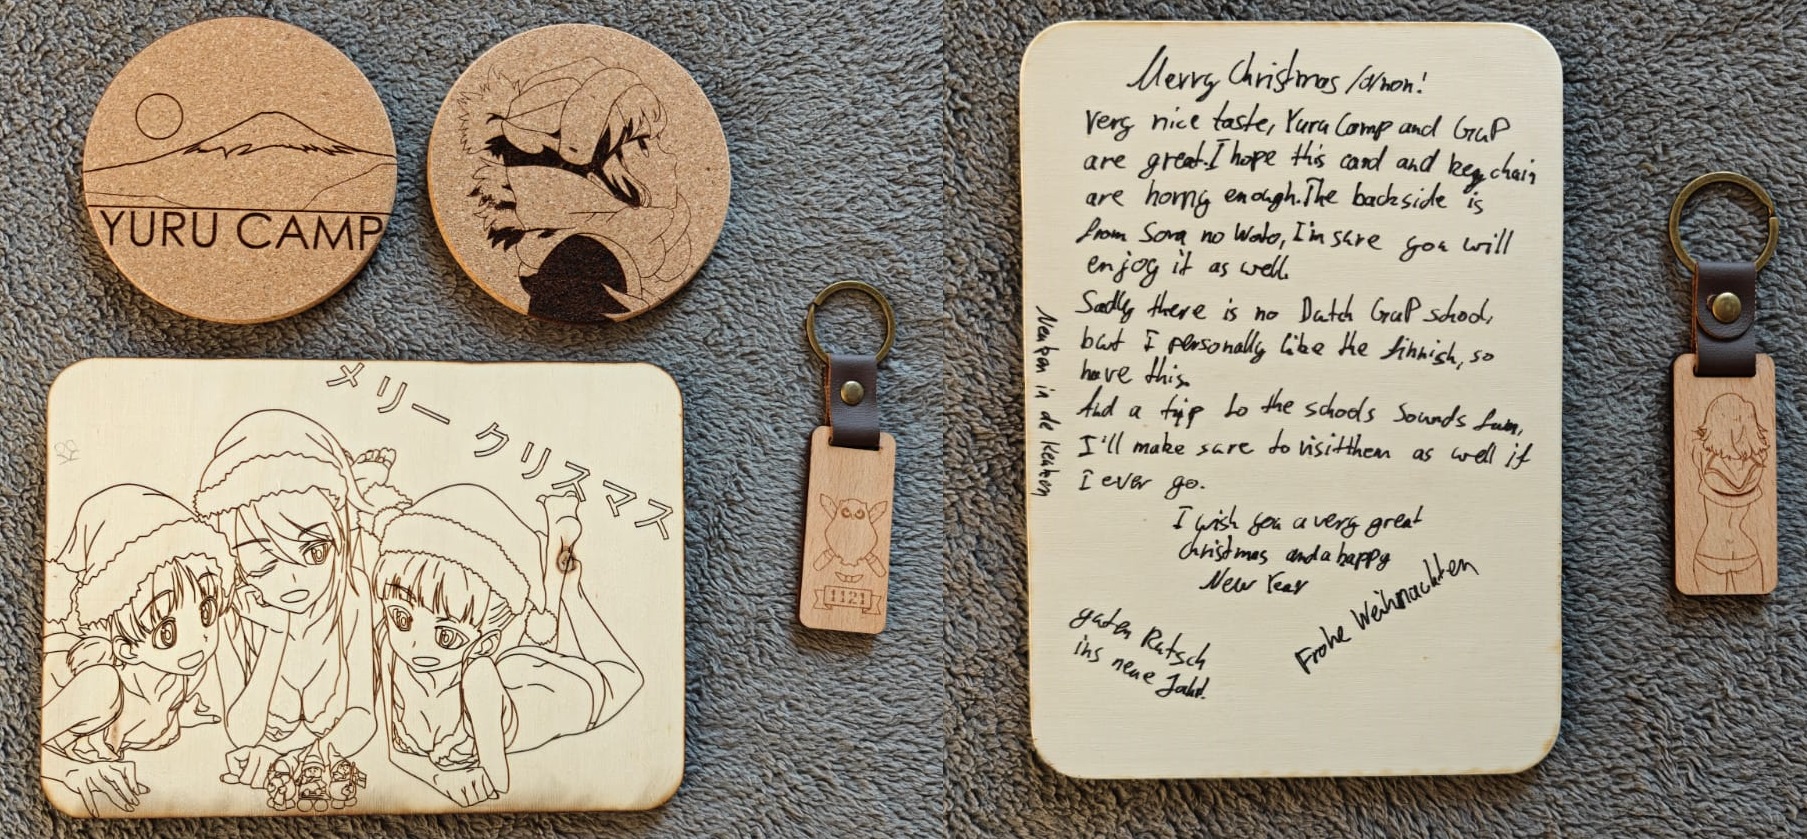 YURU CAMP
メリークリスマス
1121
Merry Christmas /a/non!
Very nice taste, Yuru Camp and GuP
are great. I hope this card and keychain
are horny enough. The backside is
from Sora no Woto, I'm sure you will
enjoy it as well.
Sadly there is no Dutch GuP school,
but I personally like the finnish, so
have this.
And a trip to the schools sounds fun,
I'll make sure to visit them as well if
I ever go.
I wish you a very great
christmas and a happy
New Year
Frohe Weihnachten
guten Rutsch
ins neue Jahr!
in de